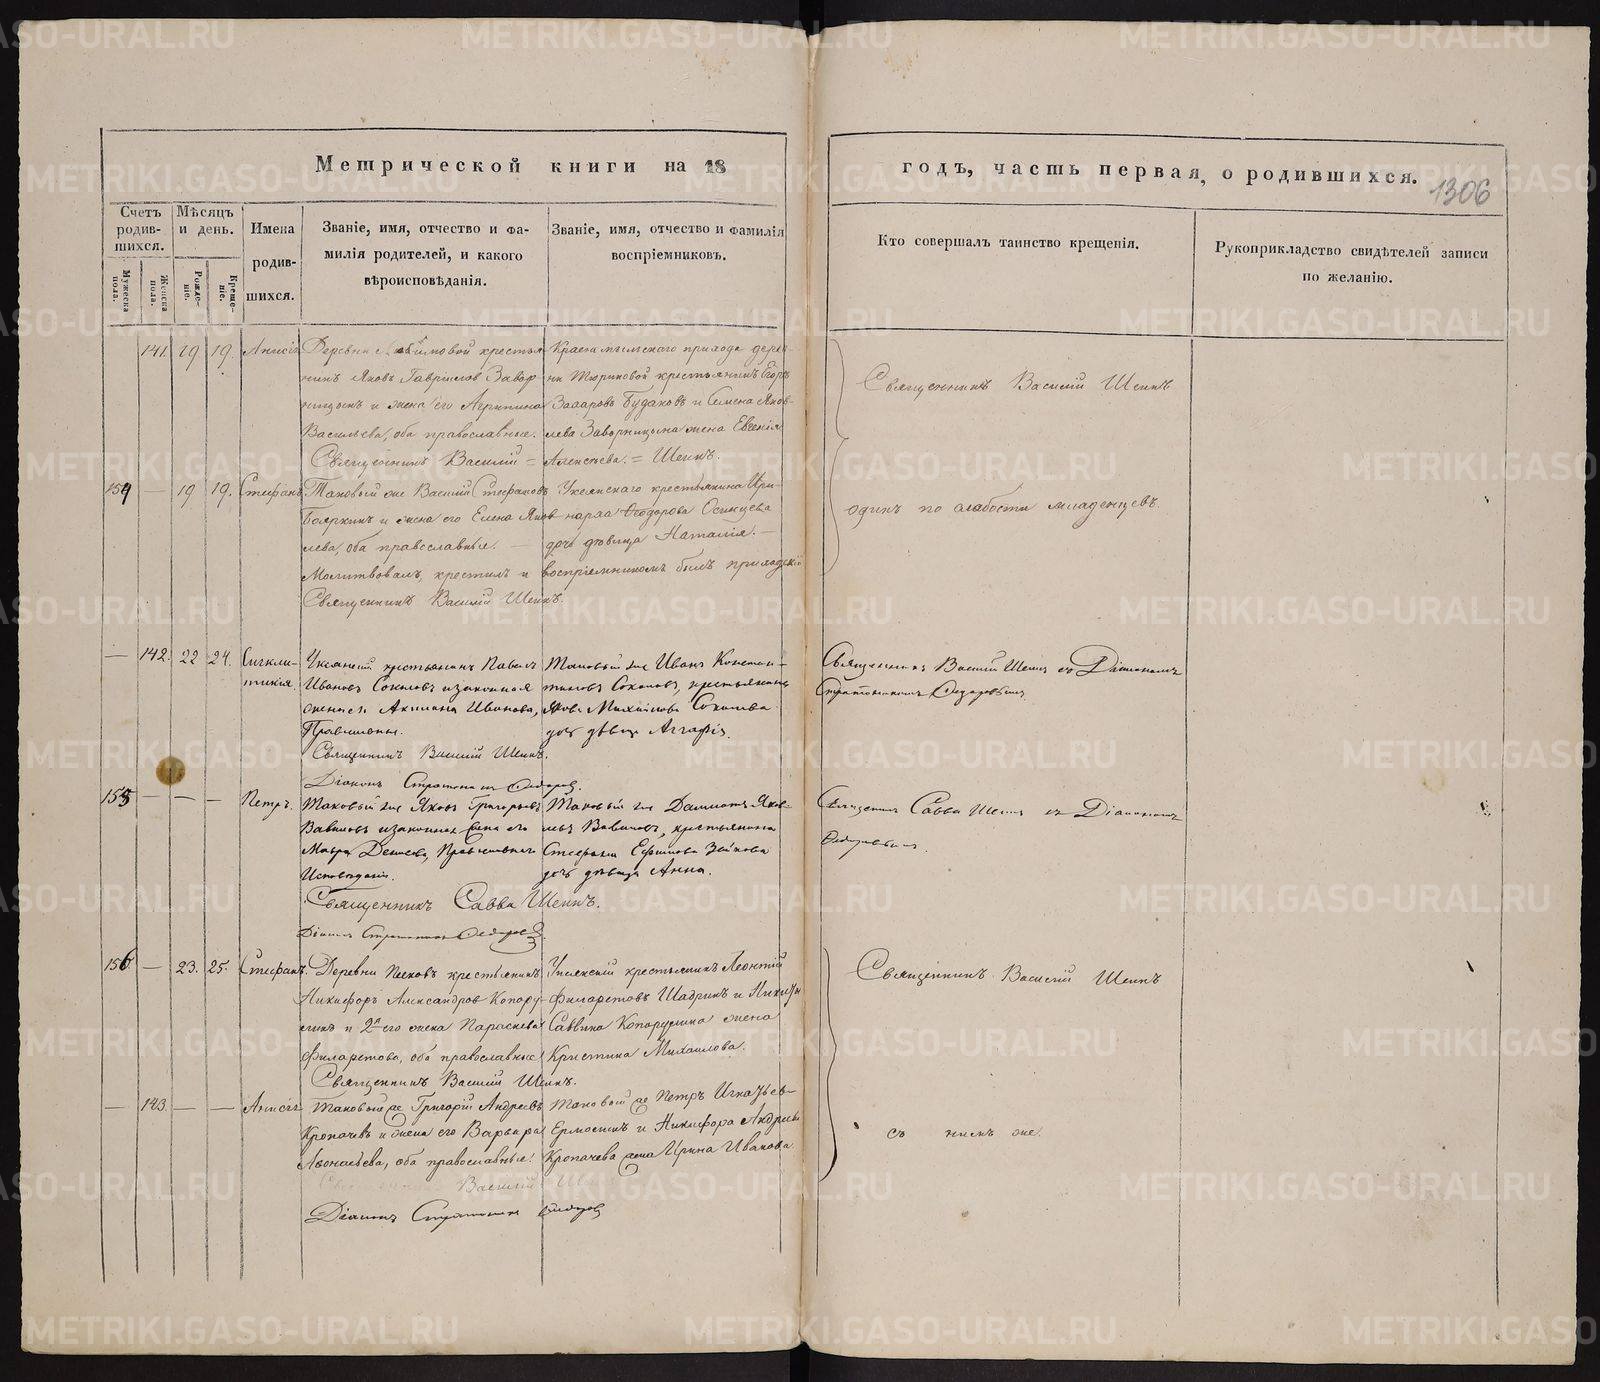 Метрической книги на 18
годъ, часть первая, о родившихся.
1306
Счетъ родив-шихся.
Мужеска пола.
Женска пола.
Мѣсяцъ и день.
Рожде-ніе.
Креще-ніе.
Имена родив-шихся.
Званіе, имя, отчество и фа-
милія родителей, и какого
вѣроисповѣданія.
Званіе, имя, отчество и фамилія
воспріемниковъ.
Кто совершалъ таинство крещенія.
Рукоприкладство свидѣтелей записи
по желанію.
141. 19 19. Анисія
Деревни крестья-
нинъ Яковъ Гавриловъ Завор-
ницынъ и жена его Агрипина
Васильева, оба православные.
прихода дерев-
ни Тюриковой крестьянинъ Егоръ
Захаровъ Будаковъ и Семена Яков-
лева Заворницына жена Евгенія
Алексѣева.
Священникъ Василій Шеинъ.
Священникъ Василій Шеинъ
154 — 19 19. Стефанъ
Таковый же Василій Стефановъ
Бояркинъ и жена его Елена Яков-
лева, оба православные. —
Уксянскаго крестьянина
Ѳеодорова Осинцева
дочь дѣвица Наталія. —
Молитвовалъ, крестилъ и воспріемникомъ былъ приходскій
Священникъ Василій Шеинъ.
одинъ по слабости младенцевъ.
— 142. 22 24. Сигкли-
тикія.
Уксянскій крестьянинъ Павелъ
Ивановъ Соколовъ и законная
жена его Акилина Иванова,
Православные.
Таковый же Иванъ Констан-
тиновъ Соколовъ, крестьянина
Якова Михайлова Соколова
дочь дѣвица Агафія.
Священникъ Василій Шеинъ.
Діаконъ Стратоникъ
Священникъ Василій Шеинъ съ Діакономъ
Стратоникомъ
155 — — — Петръ.
Таковый же Яковъ Григорьевъ
Вавиловъ и законная жена его
Мавра Денисова, Православнаго
Исповѣданія.
Таковый же Далматъ Яков-
левъ Вавиловъ, крестьянина
Стефана Ефимова Зайкова
дочь дѣвица Анна.
Священникъ Савва Шеинъ.
Діаконъ Стратоникъ
Священникъ Савва Шеинъ съ Діакономъ
156 — 23. 25. Стефанъ.
Деревни Песковъ крестьянинъ
Никифоръ Александровъ Копору-
линъ и 2я его жена Параскева
Филаретова, оба православные
Уксянскій крестьянинъ Леонтій
Филаретовъ Шадринъ и Никиты
Саввина Копорулина жена
Кристина Михаилова.
Священникъ Василій Шеинъ.
Священникъ Василій Шеинъ
— 143. — — Анисія
Таковый же Григорій Андреевъ
Кропачевъ и жена его Варвара
Аѳонасьева, оба православные.
Таковый же Петръ Игнатьев-
Ермосинъ и Никифора Андреева
Кропачева жена Ирина Иванова.
Священникъ Василій
Діаконъ Стратоникъ
съ нимъ же.
METRIKI.GASO-URAL.RU